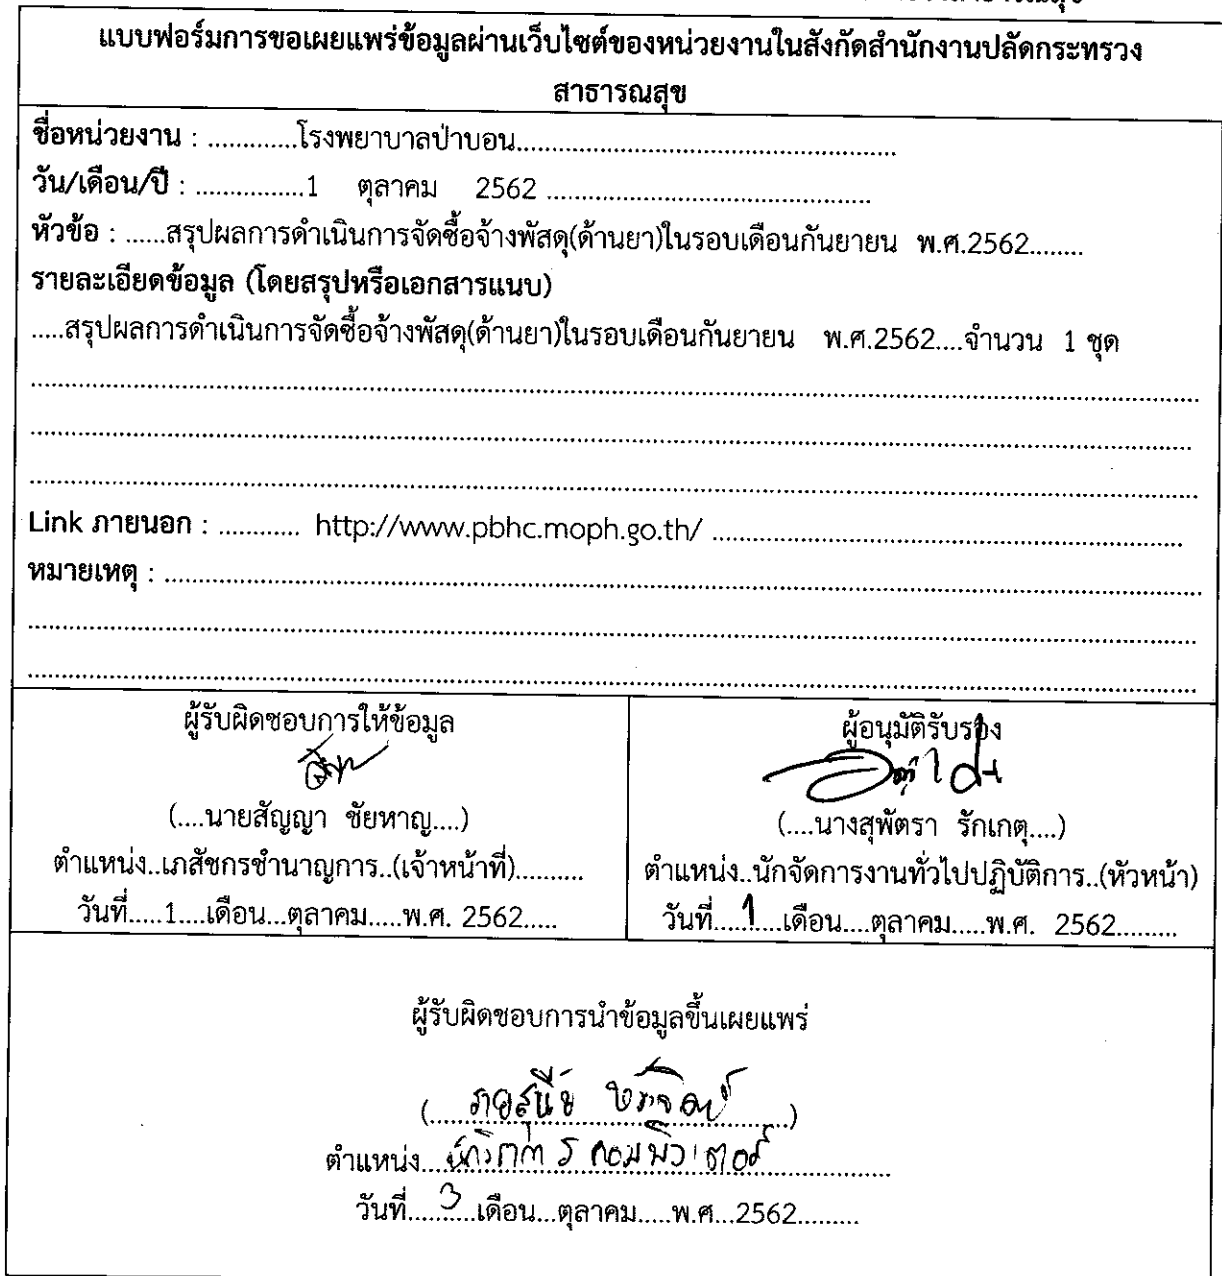 แบบฟอร์มการขอเผยแพร่ข้อมูลผ่านเว็บไซต์ของหน่วยงานในสังกัดสำนักงานปลัดกระทรวง
สาธารณสุข
ชื่อหน่วยงาน : .............โรงพยาบาลป่าบอน.......................................................
วัน/เดือน/ปี : ................1 ตุลาคม 2562 ...............................................
หัวข้อ : ......สรุปผลการดำเนินการจัดซื้อจ้างพัสดุ(ด้านยา)ในรอบเดือนกันยายน พ.ศ.2562........
รายละเอียดข้อมูล (โดยสรุปหรือเอกสารแนบ)
.....สรุปผลการดำเนินการจัดซื้อจ้างพัสดุ(ด้านยา)ในรอบเดือนกันยายน พ.ศ.2562....จำนวน 1 ชุด
Link ภายนอก : ............ http://www.pbhc.moph.go.th/ ....................................................................
หมายเหตุ : ....................................................................
ผู้รับผิดชอบการให้ข้อมูล
(....นายสัญญา ชัยหาญ....)
ตำแหน่ง..เภสัชกรชำนาญการ..(เจ้าหน้าที่)..........
วันที่.....1....เดือน...ตุลาคม.....พ.ศ. 2562.....
ผู้อนุมัติรับรอง
(....นางสุพัตรา รักเกตุ....)
ตำแหน่ง..นักจัดการงานทั่วไปปฏิบัติการ..(หัวหน้า)
วันที่.....1....เดือน....ตุลาคม.....พ.ศ. 2562.........
ผู้รับผิดชอบการนำข้อมูลขึ้นเผยแพร่
ตำแหน่ง...นักวิชาการคอมพิวเตอร์
วันที่.....3....เดือน...ตุลาคม.....พ.ศ...2562.........